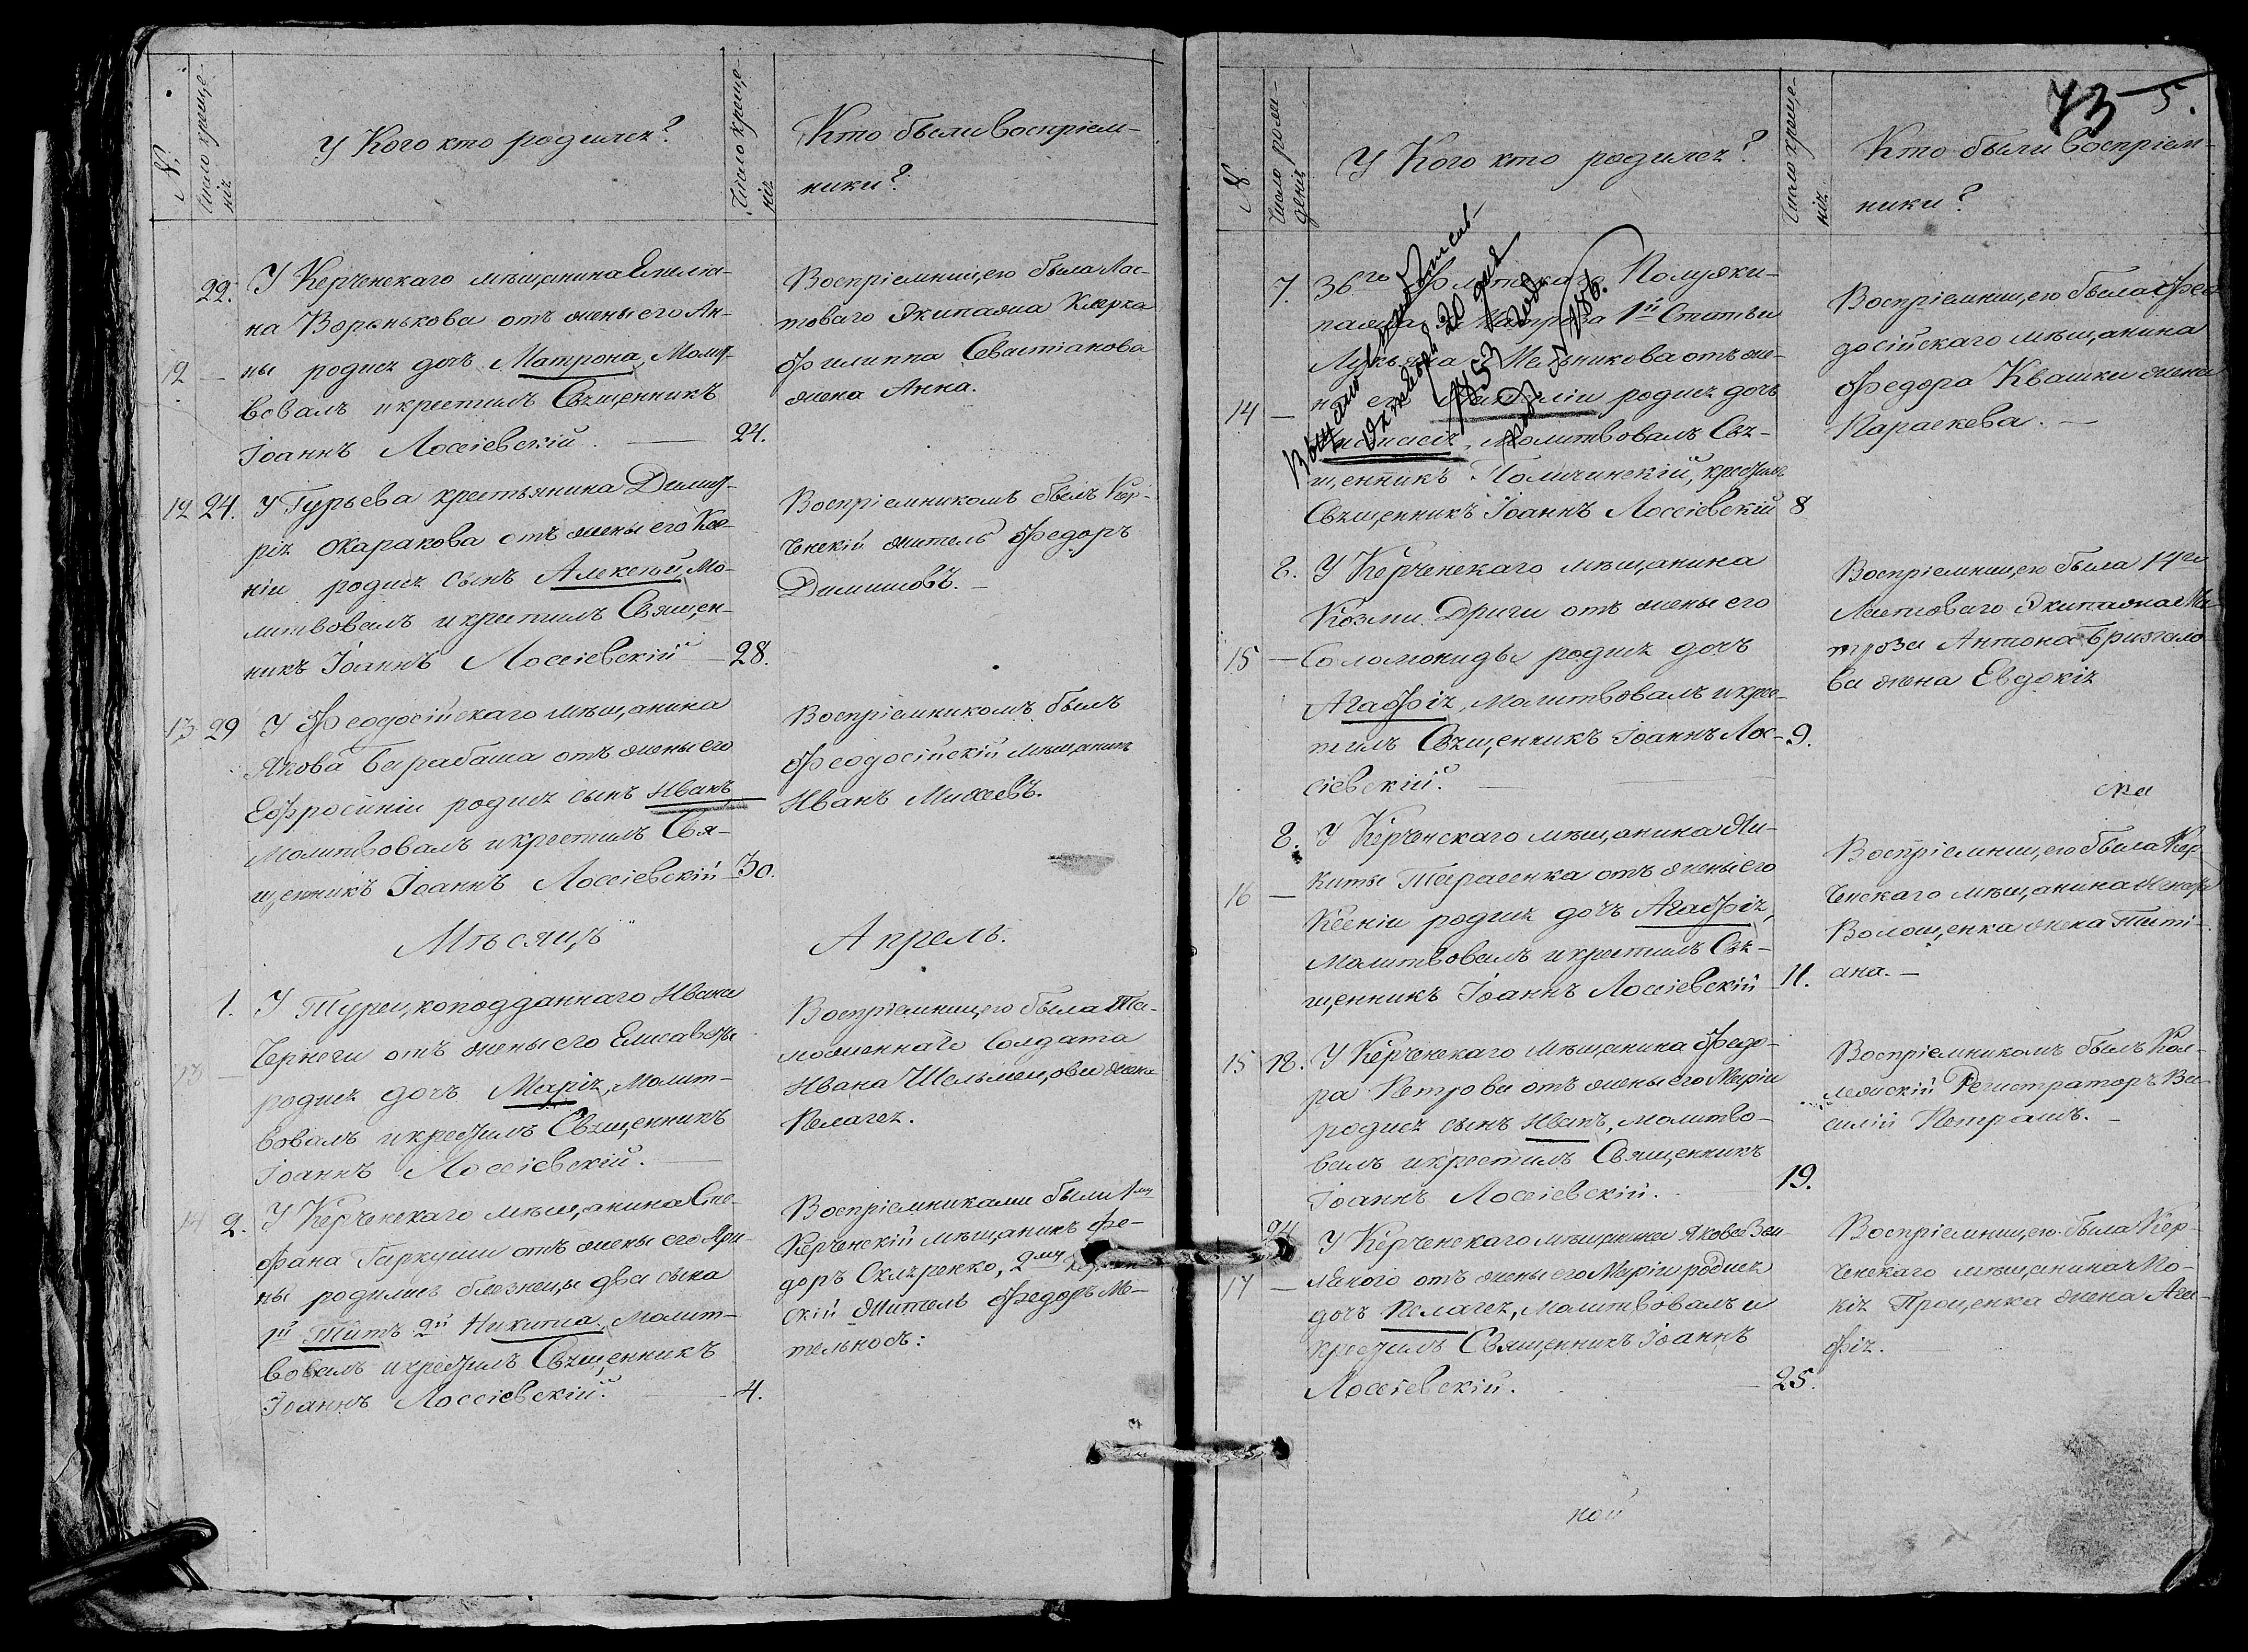 №.
Число креще-
нія
У Кого кто родился?
Число креще-
нія
Кто были Восприем-
ники?
22.
У Керченскаго мѣщанина Емелiа-
на Воронькова отъ жены его Ан-
12 —
ны родися дочь Матрона, Молит-
вовалъ и крестилъ Священникъ
Іоаннъ Лоссіевскій. — 24.
Воспріемницею была Лас-
товаго Экипажа Клерка
Филиппа Севастіанова
жена Анна.
12 24.
У Гурьева крестьянина Димит-
рія Ожаракова отъ жены его Ксе-
ніи родися сынъ Алексѣй, Мо-
литвовалъ и крестилъ Священ-
никъ Іоаннъ Лоссіевскій — 28.
Воспріемникомъ былъ Кер-
ченскій житель Федоръ
13 29
У Феодосійскаго мѣщанина
Якова Барабаша отъ жены его
Ефросиніи родися сынъ Иванъ
Молитвовалъ и крестилъ Свя-
щенникъ Іоаннъ Лоссіевскій — 30.
Воспріемникомъ былъ
Феодосійскій мѣщанинъ
Иванъ Михеевъ.
Мѣсяцъ Апрель.
1.
У Турецкоподданнаго Ивана
Чернеги отъ жены его Елисаветы
13 —
родися дочь Марія, Молит-
вовалъ и крестилъ Священникъ
Іоаннъ Лоссіевскій. —
Воспріемницею была Та-
моженнаго Солдата
Ивана жена
Пелагея.
14 2.
У Керченскаго мѣщанина Сте-
фана Гаркуши отъ жены его Ири-
ны родились близнецы два сына
1й Титъ 2й Никита, Молит-
вовалъ и крестилъ Священникъ
Іоаннъ Лоссіевскій. — 4.
Воспріемниками были 1му
Керченскій мѣщанинъ Фе-
доръ Скляренко, 2му Керчен-
скій Житель Федоръ Ме-
73 5.
№
Число рож-
денія
У Кого кто родился?
Число креще-
нія
Кто были Восприем-
ники?
7.
36го Флотскаго Полуэки-
пажа Матроза 1й Статьи
Лукьяна Мельникова отъ же-
14 —
ны его родися дочь
Анастасія, Молитвовалъ Свя-
щенникъ крестилъ
Священникъ Іоаннъ Лоссіевскій 8
20 дня
1853 года
№ 186.
Воспріемницею была Фео-
досійскаго мѣщанина
Федора Квашки жена
Параскева. —
8.
У Керченскаго мѣщанина
Козми Дриги отъ жены его
15 —
Соломониды родися дочь
Агафія, Молитвовалъ и крес-
тилъ Священникъ Іоаннъ Лос- 9.
сіевскій.
Воспріемницею была 14го
Ластоваго Экипажа Ма-
троза Антона Бризгало-
ва жена Евдокія
8.
У Керченскаго мѣщанина Ни-
киты Тарасенка отъ жены его
16 —
Ксеніи родися дочь Агафія,
Молитвовалъ и крестилъ Свя-
щенникъ Іоаннъ Лоссіевскій 11.
Воспріемницею была Кер-
ченскаго мѣщанина
Волощенка жена Тати-
ана. —
15 18.
У Керченскаго Мѣщанина Федо-
ра Петрова отъ жены его Маріи
родися сынъ Иванъ, молитво-
валъ и крестилъ Священникъ
Іоаннъ Лоссіевскій. 19.
Воспріемникомъ былъ Кол-
лежскій Регистраторъ Ва-
силій Петрашъ. —
24
У Керченскаго мѣщанина Якова
отъ жены его Маріи родися
17 —
дочь Пелагея, Молитвовалъ и
крестилъ Священникъ Іоаннъ
Лоссіевскій. — 25.
Воспріемницею была Кер-
ченскаго мѣщанина Мо-
кія Проценка жена Ага-
фія.
ной